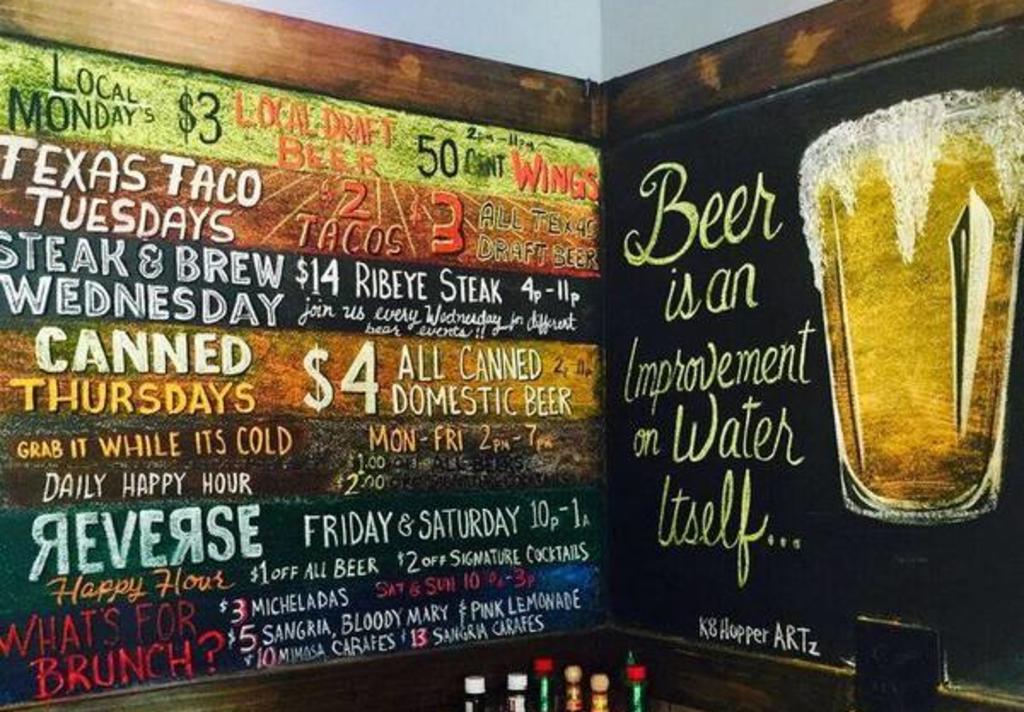 LOCAL
MONDAY'S $3 LOCAL DRAFT
BEER 50 CENT WINGS
2PM-11PM
TEXAS TACO
TUESDAYS
$2
TACOS
$3 ALL TEXAS
DRAFT BEER
STEAK & BREW
WEDNESDAY
$14 RIBEYE STEAK 4P-11P
join us every Wednesday for different
beer events!!
CANNED
THURSDAYS
$4 ALL CANNED
DOMESTIC BEER
GRAB IT WHILE ITS COLD
DAILY HAPPY HOUR
MON-FRI 2PM-7PM
$1.00 OFF ALL BEERS
$2.00
REVERSE
Happy Hour
FRIDAY & SATURDAY 10P-1A
$1 OFF ALL BEER $2 OFF SIGNATURE COCKTAILS
WHAT'S FOR
BRUNCH?
SAT & SUN
$3 MICHELADAS
$5 SANGRIA, BLOODY MARY & PINK LEMONADE
$10 MIMOSA CARAFES $13 SANGRIA CARAFES
Beer
is an
Improvement
on Water
Itself...
K8 Hopper ARTz